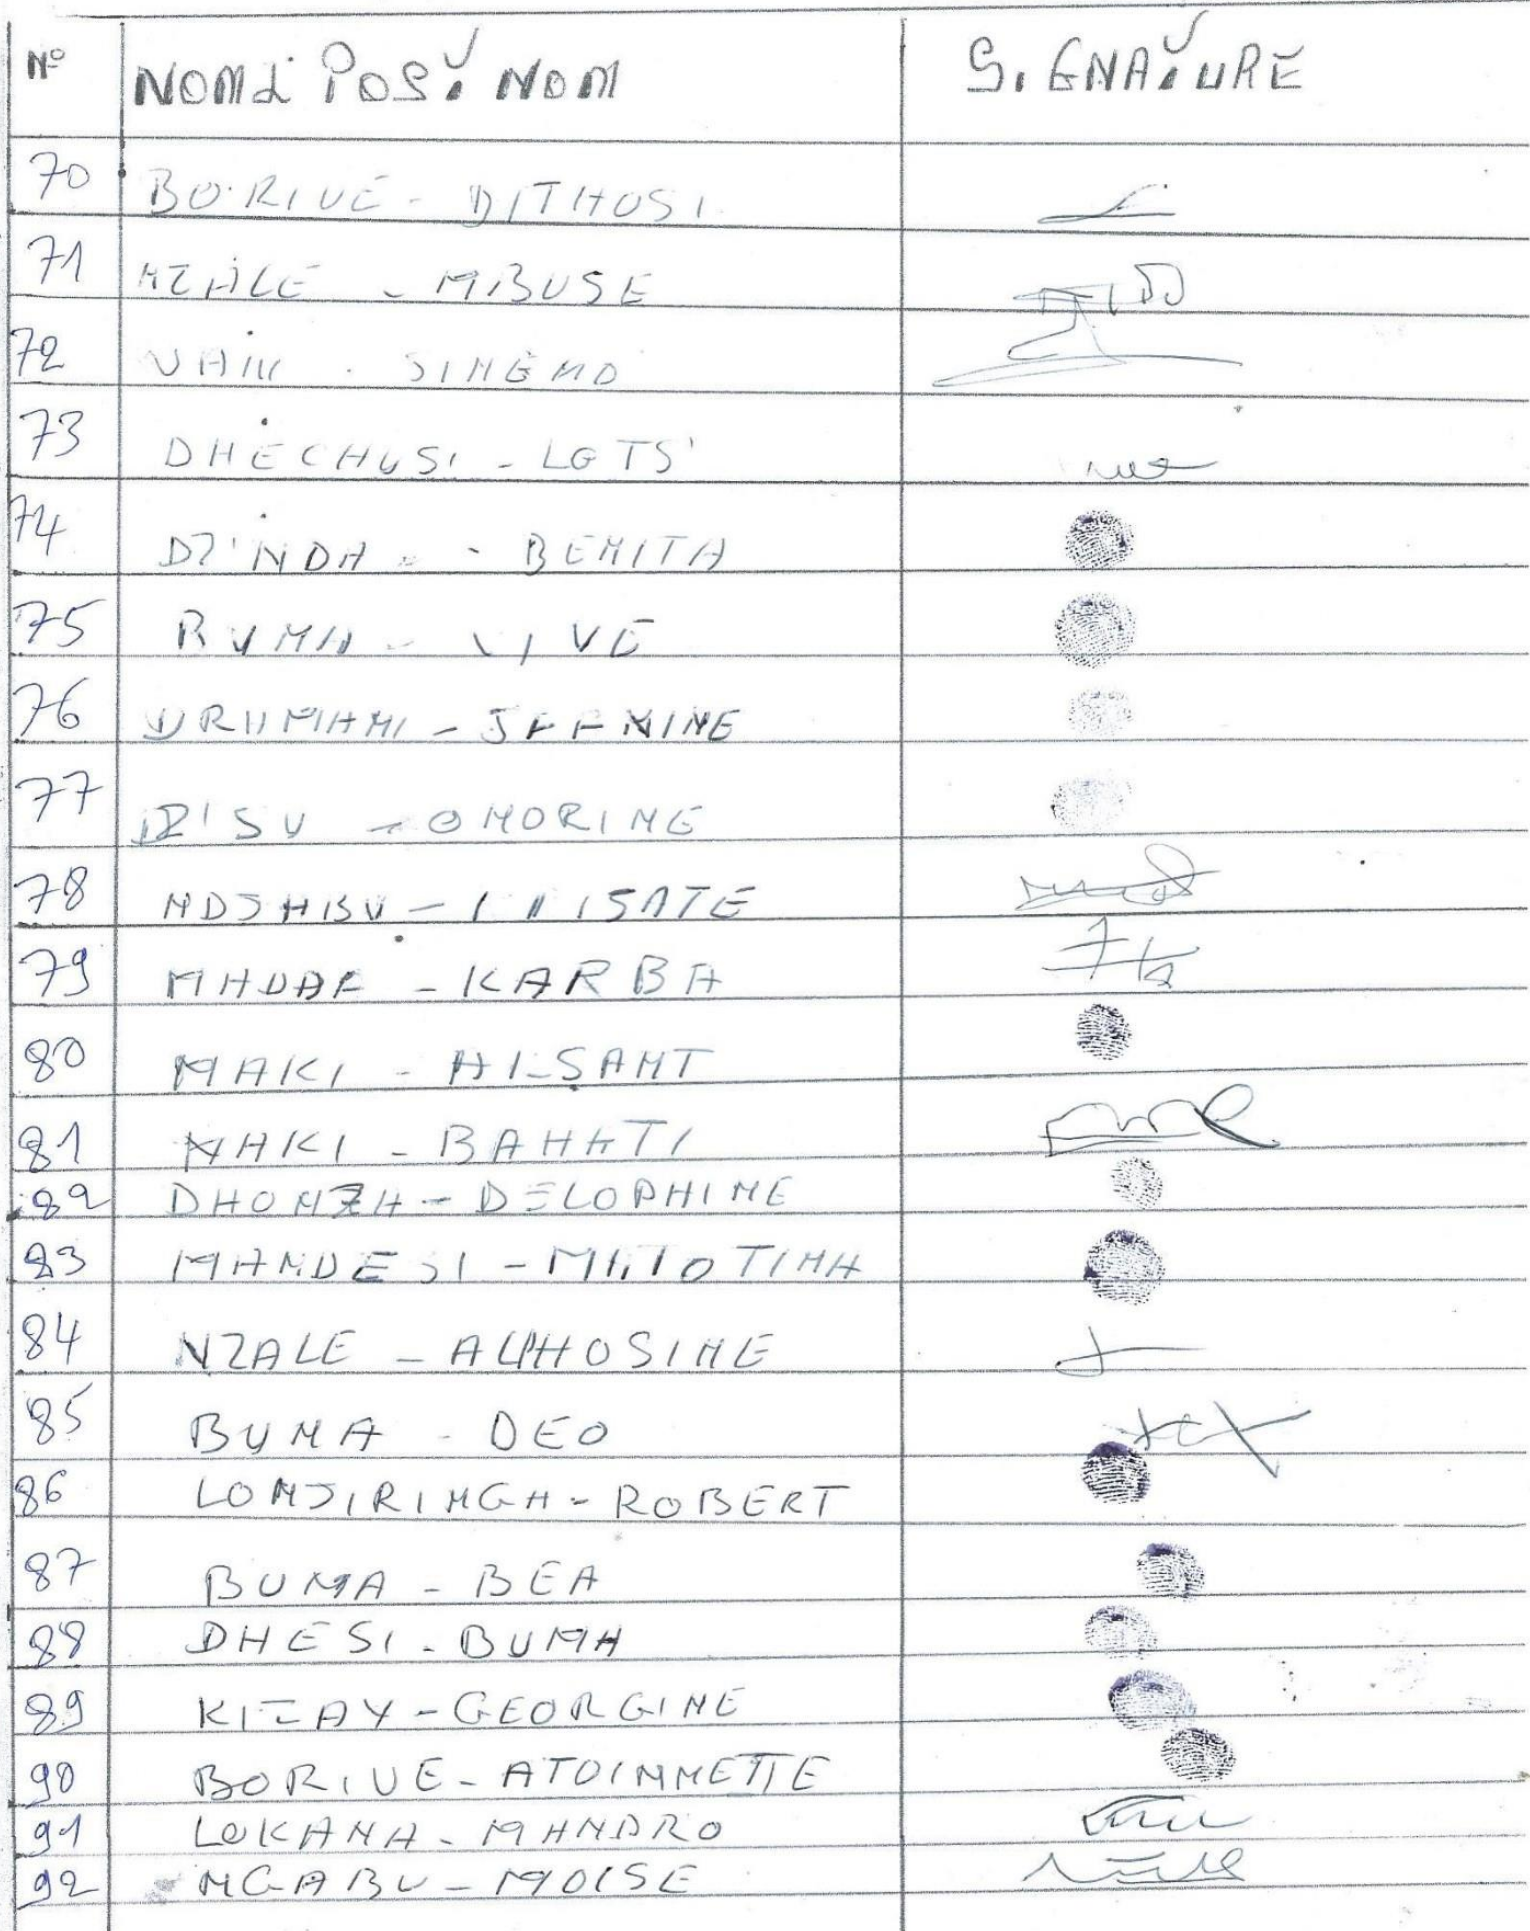 N° NOM & POST NOM SIGNATURE
70 BORIVE - DITHOSI
71 NZALE - MBUSE
72 SINEMO
73 DHECHUSI - LOTSI
74 DZ'NDA - BENITA
75 BUMA - VIVE
76 JEANNINE
77 DZ'SU - ONORINE
78 NDJABU -
79 - KARBA
80 MAKI -
81 MAKI - BAHATI
82 DHONZA - DELOPHINE
83 MANDESI -
84 NZALE - ALPHOSINE
85 BUMA - DEO
86 LONJIRINGA - ROBERT
87 BUMA - BEA
88 DHESI - BUMA
89 KIZAY - GEORGINE
90 BORIVE - ATOINNETTE
91 LOKANA - MANDRO
92 NGABU - MOISE